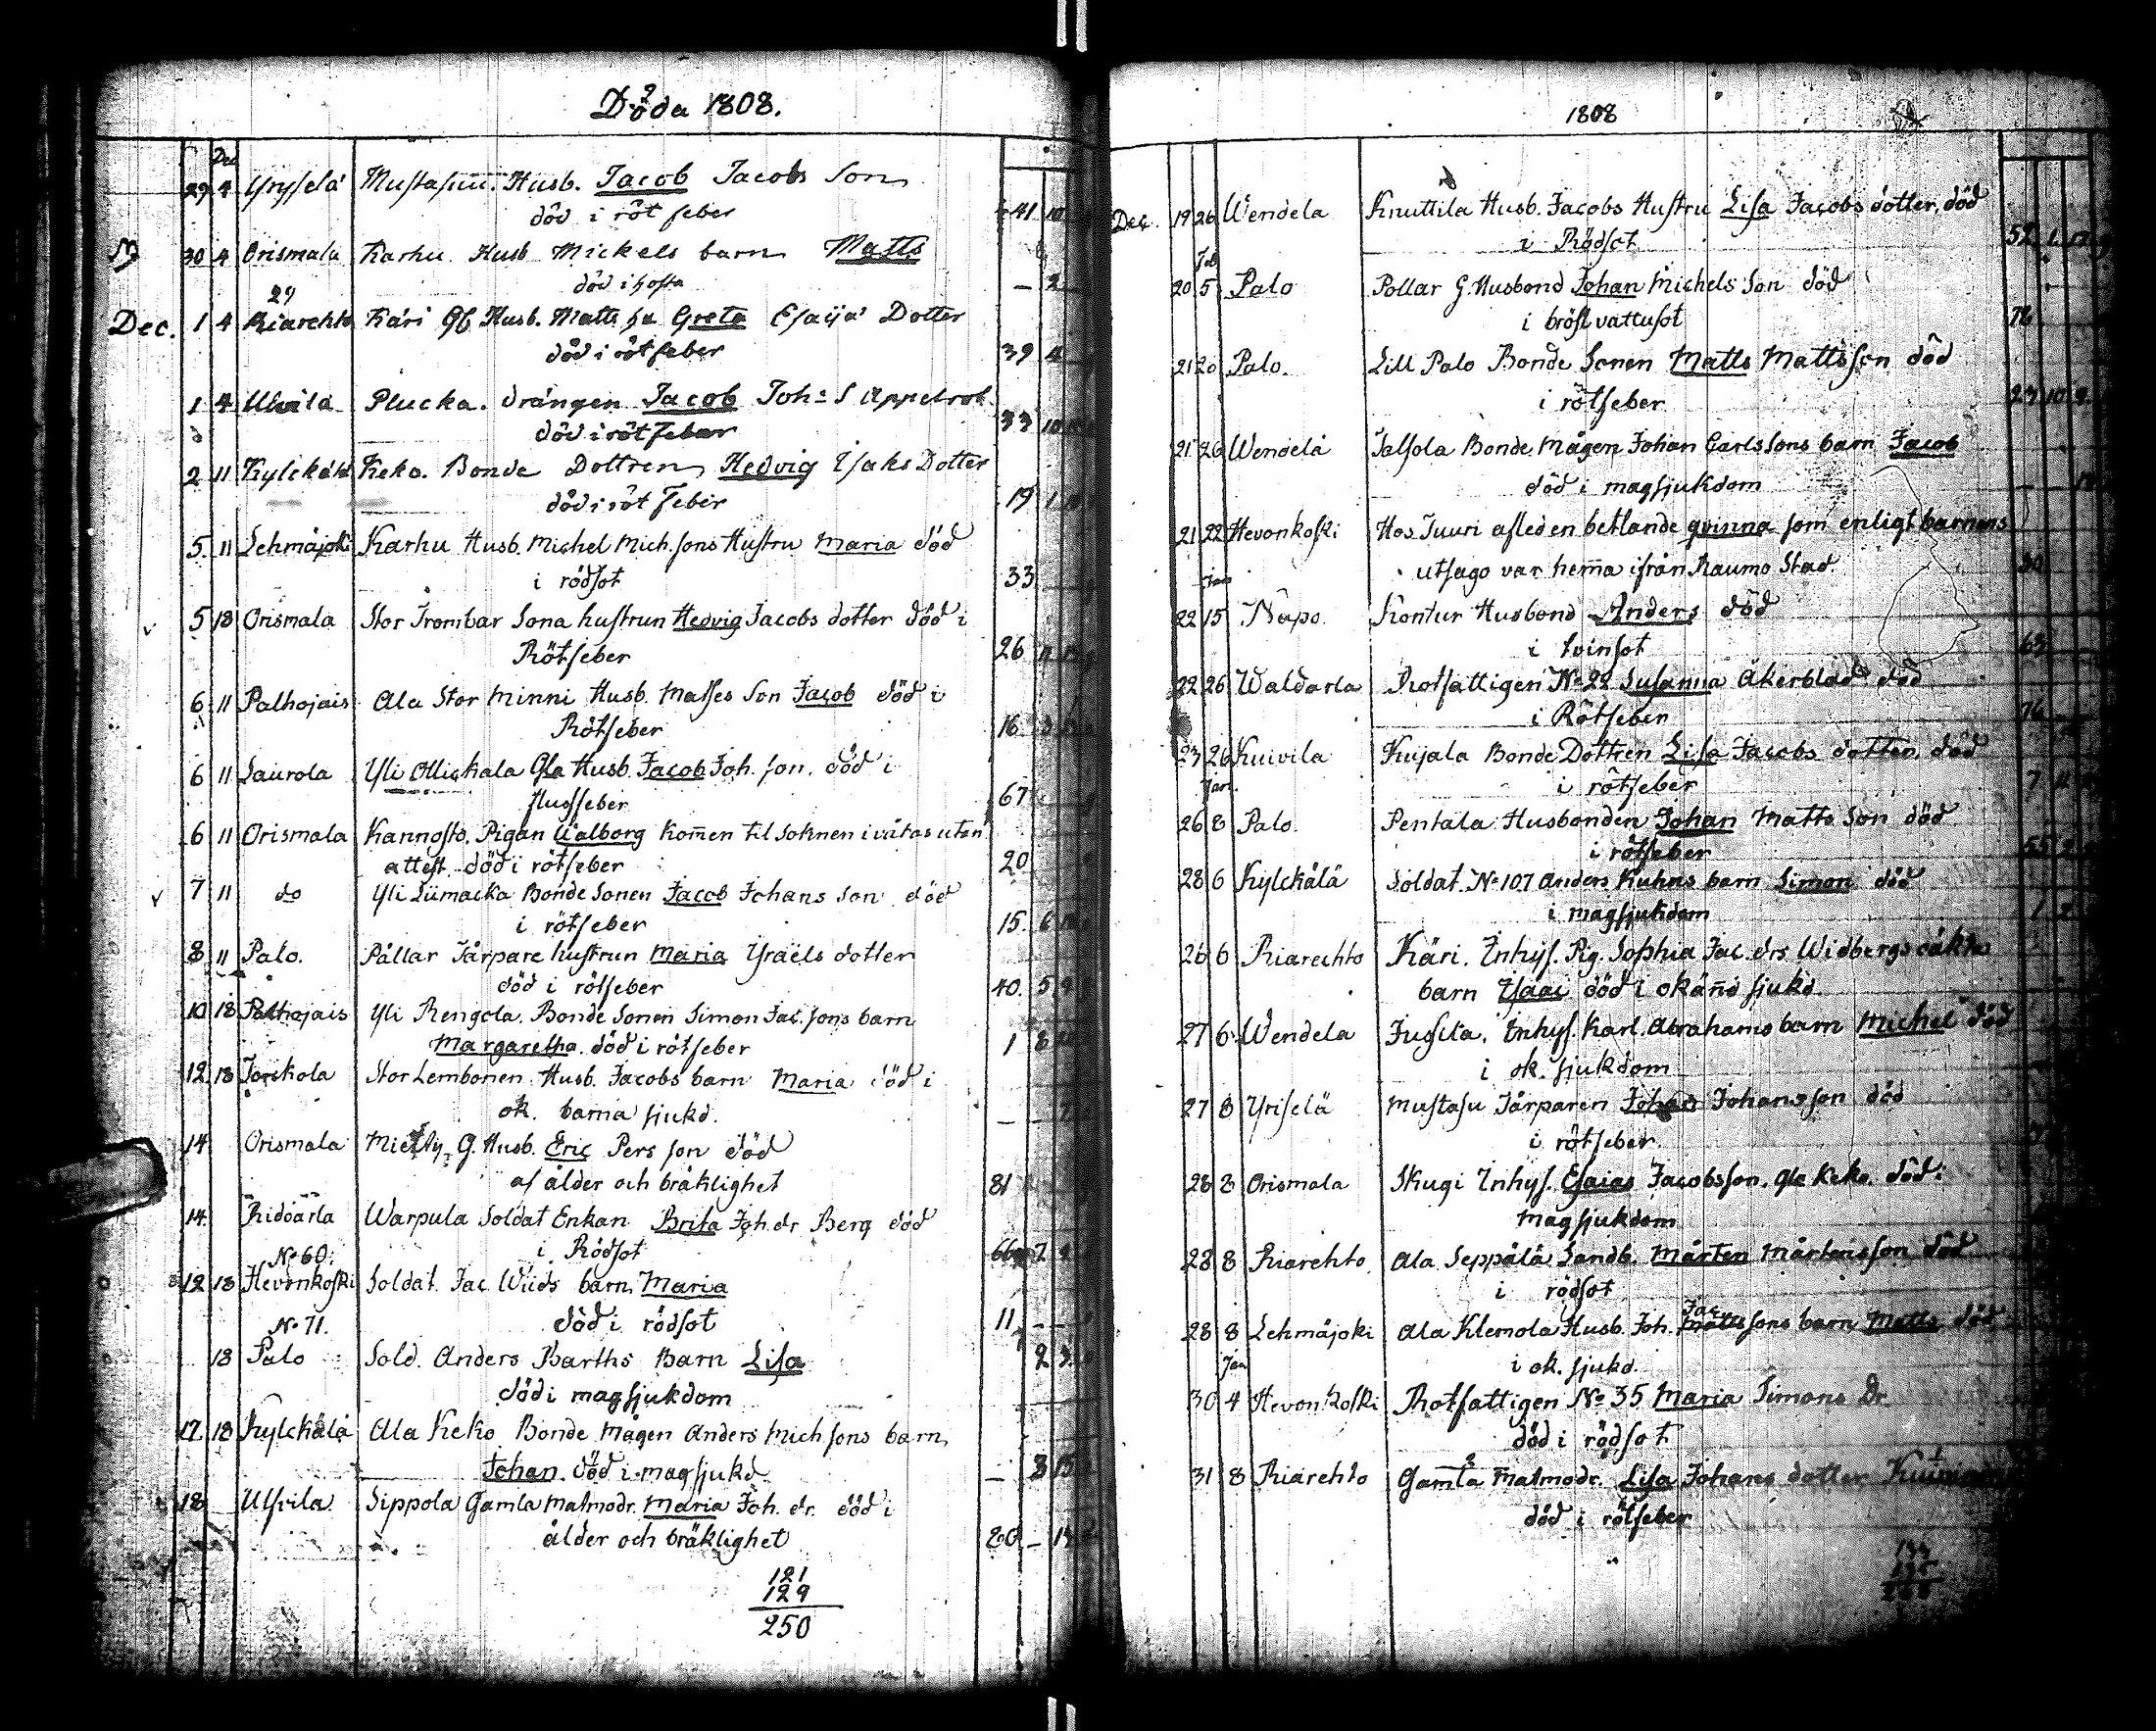 Döda 1808.
Dec
29 4 Yryselä Mustasuu. Husb. Jacob Jacobs Son
död i rötfeber 41 10
30 4 Orismala Karhu Husb Mickels barn Matts
död i hosta — 2
29
Dec. 1 4 Riarehto Käri Gl Husb. Matts hu Greta Esaijä Dotter
död i rötfeber 39 4
1 4 Ulvila Plucka. drängen Jacob Joh: S Appelrot
död i rötfeber 33 10
2 11 Kylckälä Keko. Bonde Dottren Hedvig Isaks Dotter
död i röt Feber 19 1
5 11 Lehmäjoki Karhu Husb. Michel Mich.sons Hustru Maria död
i rödsot 33
5 18 Orismala Stor Trombar Sona hustrun Hedvig Jacobs dotter död i
Rötfeber 26 11
6 11 Palhojais Ala Stor Minni Husb. Matses Son Jacob död i
Rötfeber 16
6 11 Laurola Yli Olliskala Gla Husb. Jacob Joh. son. död i
flussfeber 67
6 11 Orismala Kannosto. Pigan Walborg komen til soknen i våtas utan
attest död i rötfeber 20
7 11 do Yli Liimacka Bonde Sonen Jacob Johans son död
i rötfeber 15. 6
8 11 Palo. Pållar Tårpare hustrun Maria Ysraels dotter
död i rötfeber 40. 5 9
10 18 Palhojais Yli Rengola. Bonde Sonen Simon Jac. sons barn
Margaretha. död i rötfeber 1 8
12 18 Jorikola Stor Lembonen Husb. Jacobs barn Maria död i
ok. barna sjukd. — — 7
14 Orismala Miety G. Husb. Eric Pers son död
af ålder och bräklighet 81
14. Ridöarla Warpula Soldat Enkan Brita Joh. dr Berg död
i Rödsot 66 7
No 60:
12 18 Hevonkoski Soldat. Jac Wiids barn Maria
död i rödsot 11 — —
No 71.
18 Palo Sold. Anders Barths Barn Lisa 2 3
död i magsjukdom
17 18 Kylckälä Ala Keko Bonde Mågen Anders Mich.sons barn
Johan. död i magsjukd — 3 15
18 Ulfvila Sippola Gamla Matmodr. Maria Joh. dr. död i
ålder och bräklighet 80 — 14
121
129
250
1808
Dec. 19 26 Wendela Knuttila Husb. Jacobs Hustru Lisa Jacobs dotter, död
i Rödsot 52 1 17
Feb
20 5 Palo Pollar G. Husbond Johan Michels Son död
i bröst vattusot 76
21 20 Palo. Lill Palo Bonde Sonen Matts Mattsson död
i rötfeber 23 10 9
21 26 Wendelä Talsola Bonde Mågen Johan Carlssons barn Jacob
död i magsjukdom
21 22 Hevonkoski Hos Juuri afled en betlande qvinna som enligt barnens
utsago var hemma ifrån Raumo Stad. 30
Jan
22 15 Napo. Kontur Husbond Anders död
i tvinsot 63
22 26 Waldarla Rotfattigen No 22 Susanna Åkerblad död
i Rötfeber 76
23 26 Kuivila Kujala Bonde Dottren Lisa Jacobs dotter, död
i rötfeber 7 11
Jan.
26 8 Palo. Pentala Husbonden Johan Matts Son död
i rötfeber 55 2
28 6 Kylckälä Soldat. No 107 Anders Kuhns barn Simon död
i magsjukdom 1 2
26 6 Riarehto Käri. Inhys. Pig. Sophia Jac. drs Widbergs oäkta
barn Isaac död i okänd sjukd.
27 6 Wendela Jussila. Inhys. Karl. Abrahams barn Michel död
i ok. sjukdom
27 8 Yriselä Mustasu Tårparen Johan Johansson död
i rötfeber
28 8 Orismala Skugi Inhys. Esaias Jacobsson. Gla Keko. död i
Magsjukdom
28 8 Riarehto Ala Seppälä Landb. Mårten Mårtensson död
i rödsot
Jac
28 8 Lehmäjoki Ala Klemola Husb. Joh. Mattssons barn Matts död
i ok. sjukd.
Jan
30 4 Hevonkoski Rotfattigen No 35 Maria Simons Dr
död i rödsot
31 8 Riarehto Gamla Matmodr. Lisa Johans dotter
död i rötfeber